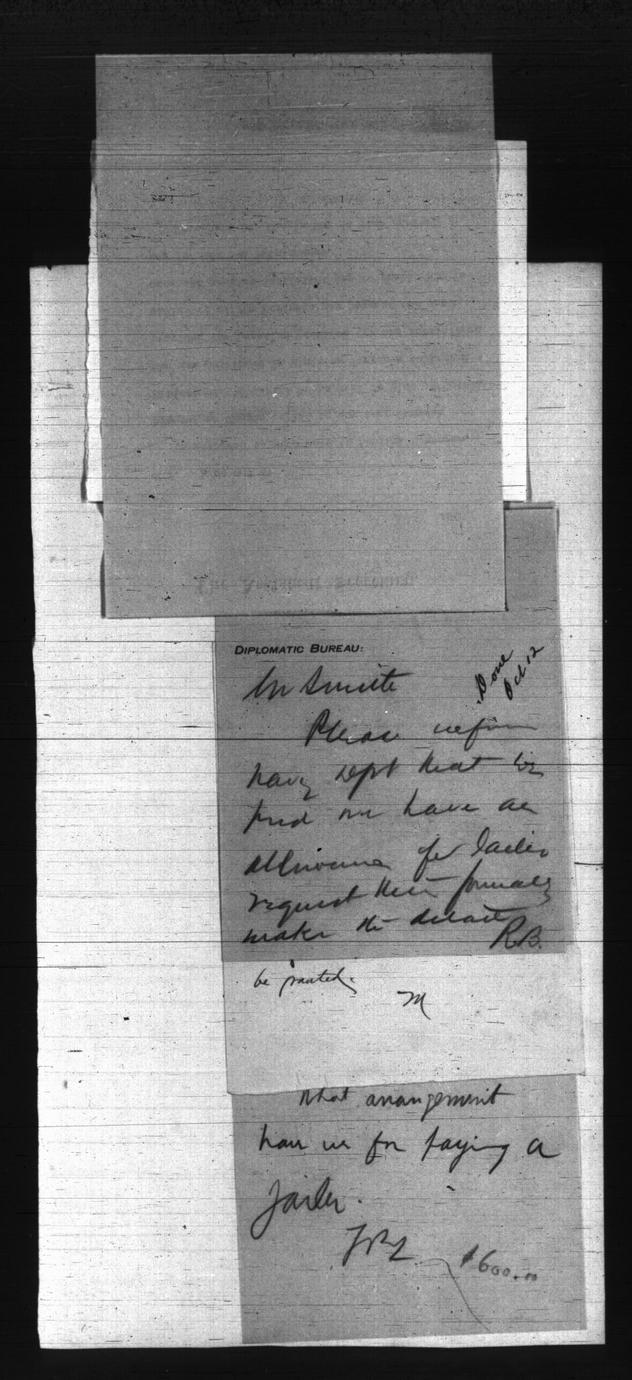 DIPLOMATIC BUREAU:
Mr Smith
Done
Oct 12
Please inform
Navy Dept that we
find we have an
allowance for Jailer
request them formally
make the detail
R.B.
be granted.
M
What arrangement
have we for paying a
Jailer.
$600.00